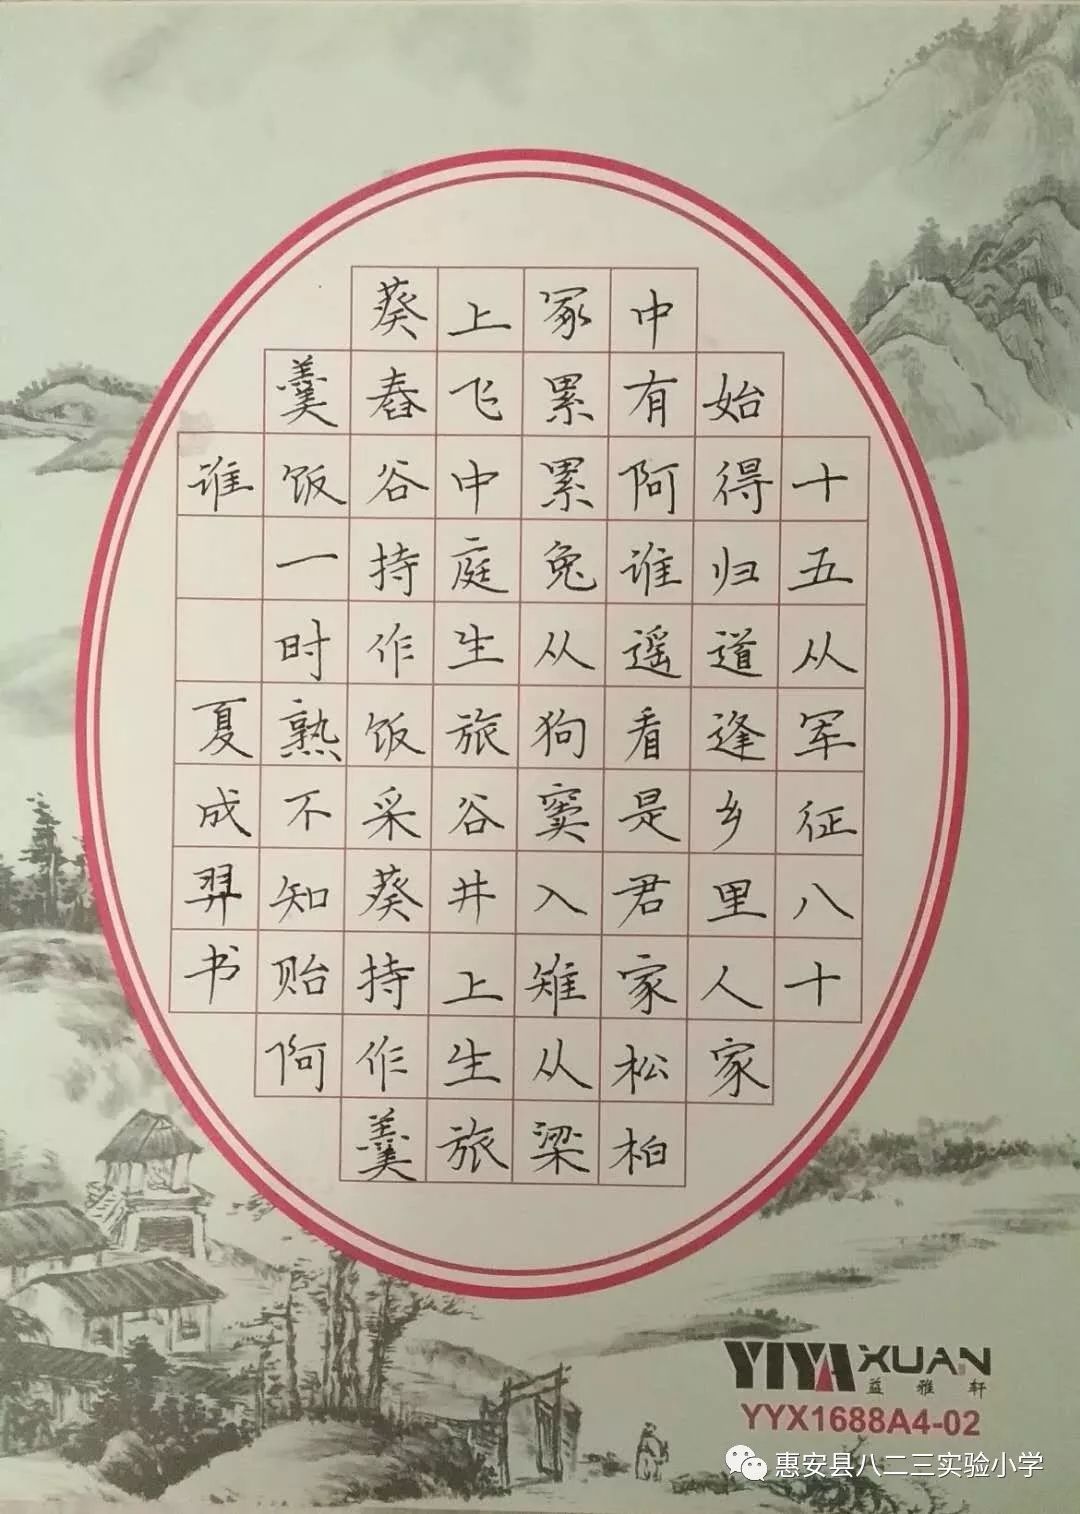 十五从军征八十
始得归道逢乡里人家
中有阿谁遥看是君家松柏
冢累累兔从狗窦入雉从梁
上飞中庭生旅谷井上生旅
葵舂谷持作饭采葵持作羹
羹饭一时熟不知贻阿
谁 夏成羿书
YIYA XUAN
益雅轩
YYX1688A4-02
惠安县八二三实验小学